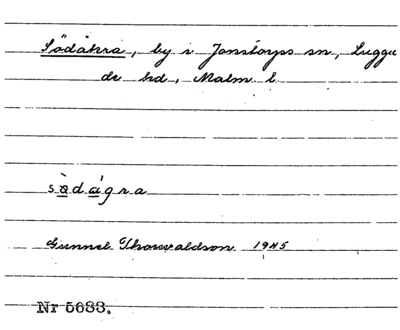 Södåkra, by i Jonstorps sn, Luggu
de hd, Malm. l.
sàdágra
Gunnel Thorvaldson 1945
Nr 5683.